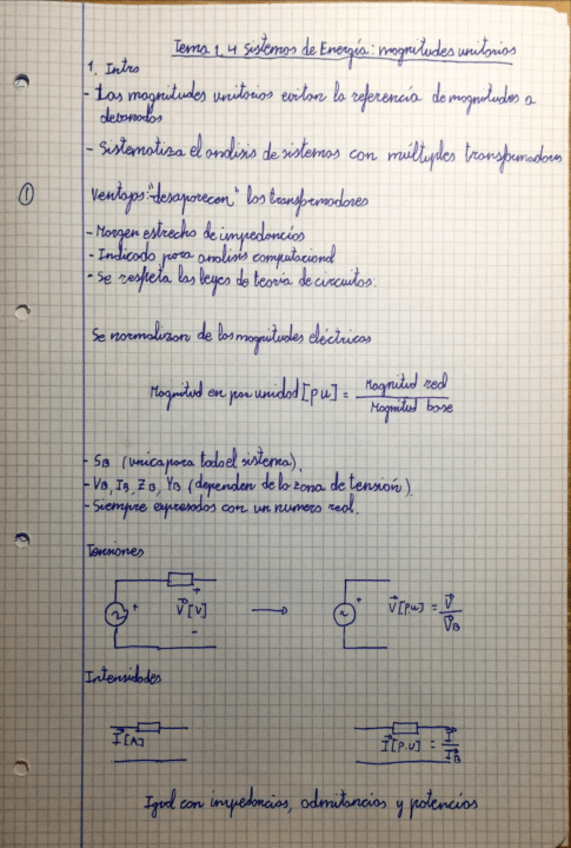 Tema 1.4 Sistemas de Energía: magnitudes unitarias
1. Intro
- Las magnitudes unitarias evitan la referencia de magnitudes a
devanados
- Sistematiza el analisis de sistemas con múltiples transformadores
①
Ventajas: "desaparecen" los transformadores
- Margen estrecho de impedancias
- Indicado para analisis computacional
- Se respeta las leyes de teoria de circuitos.
Se normalizan de las magnitudes eléctricas
Magnitud en por unidad [pu] = Magnitud real / Magnitud base
- SB (unica para todo el sistema).
- VB, IB, ZB, YB (dependen de la zona de tensión).
- Siempre expresados con un numero real.
Tensiones
V⃗[V] → V⃗[pu] = V⃗ / V⃗B
Intensidades
I⃗[A] I⃗[p.u] = I⃗ / I⃗B
Igual con impedancias, admitancias y potencias